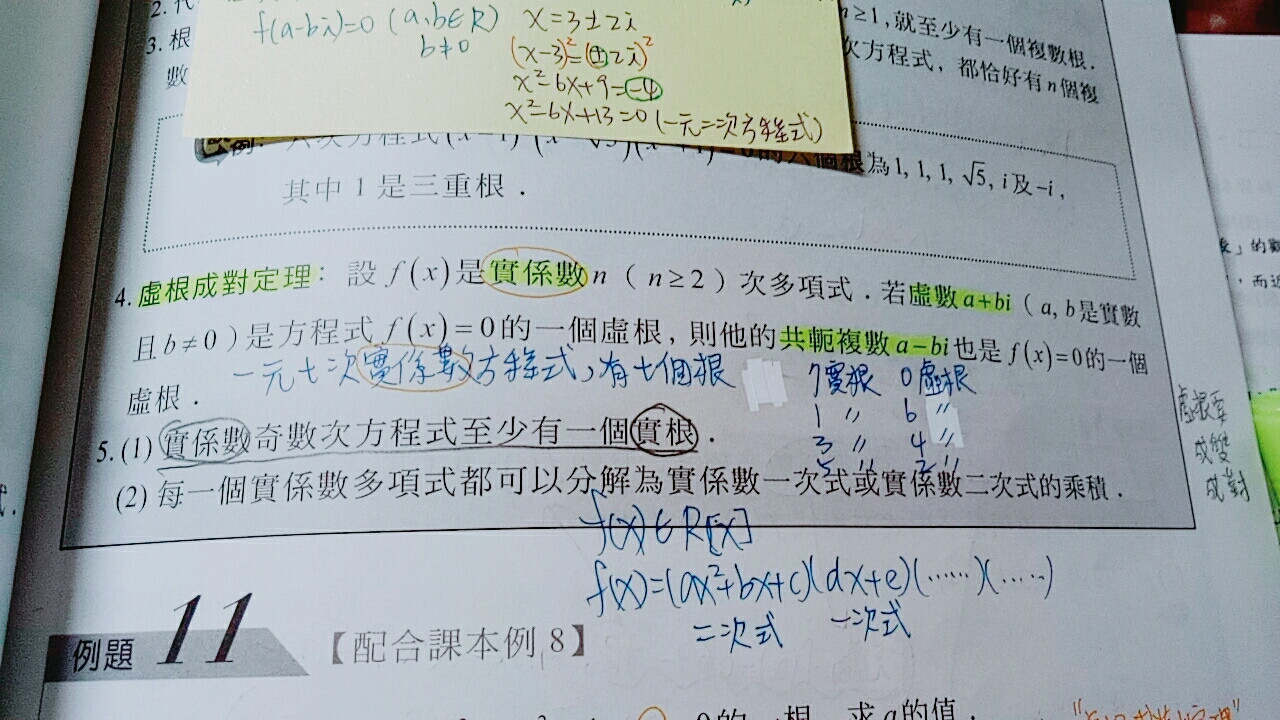 2. 代
f(a-bi)=0 (a,b∈R)
b≠0
x=3±2i
(x-3)²=(±2i)²
x²-6x+9=-4
x²-6x+13=0 (一元二次方程式)
n≥1,就至少有一個複數根.
3. 根
次方程式,都恰好有n個複
數
例:
的六個根為1, 1, 1, √5, i及-i,
其中1是三重根.
4. 虛根成對定理:設f(x)是實係數n(n≥2)次多項式.若虛數a+bi(a, b是實數
且b≠0)是方程式f(x)=0的一個虛根,則他的共軛複數a-bi也是f(x)=0的一個
虛根.
一元七次實係數方程式,有七個根
7實根 0虛根
1 〃 6 〃
3 〃 4 〃
5 〃 2 〃
虛根要
成雙
成對
5. (1) 實係數奇數次方程式至少有一個實根.
(2) 每一個實係數多項式都可以分解為實係數一次式或實係數二次式的乘積.
f(x)∈R[x]
f(x)=(ax²+bx+c)(dx+e)(……)(……)
二次式 一次式
例題 11 【配合課本例8】
0的一根,求a的值.
」的觀
,而近